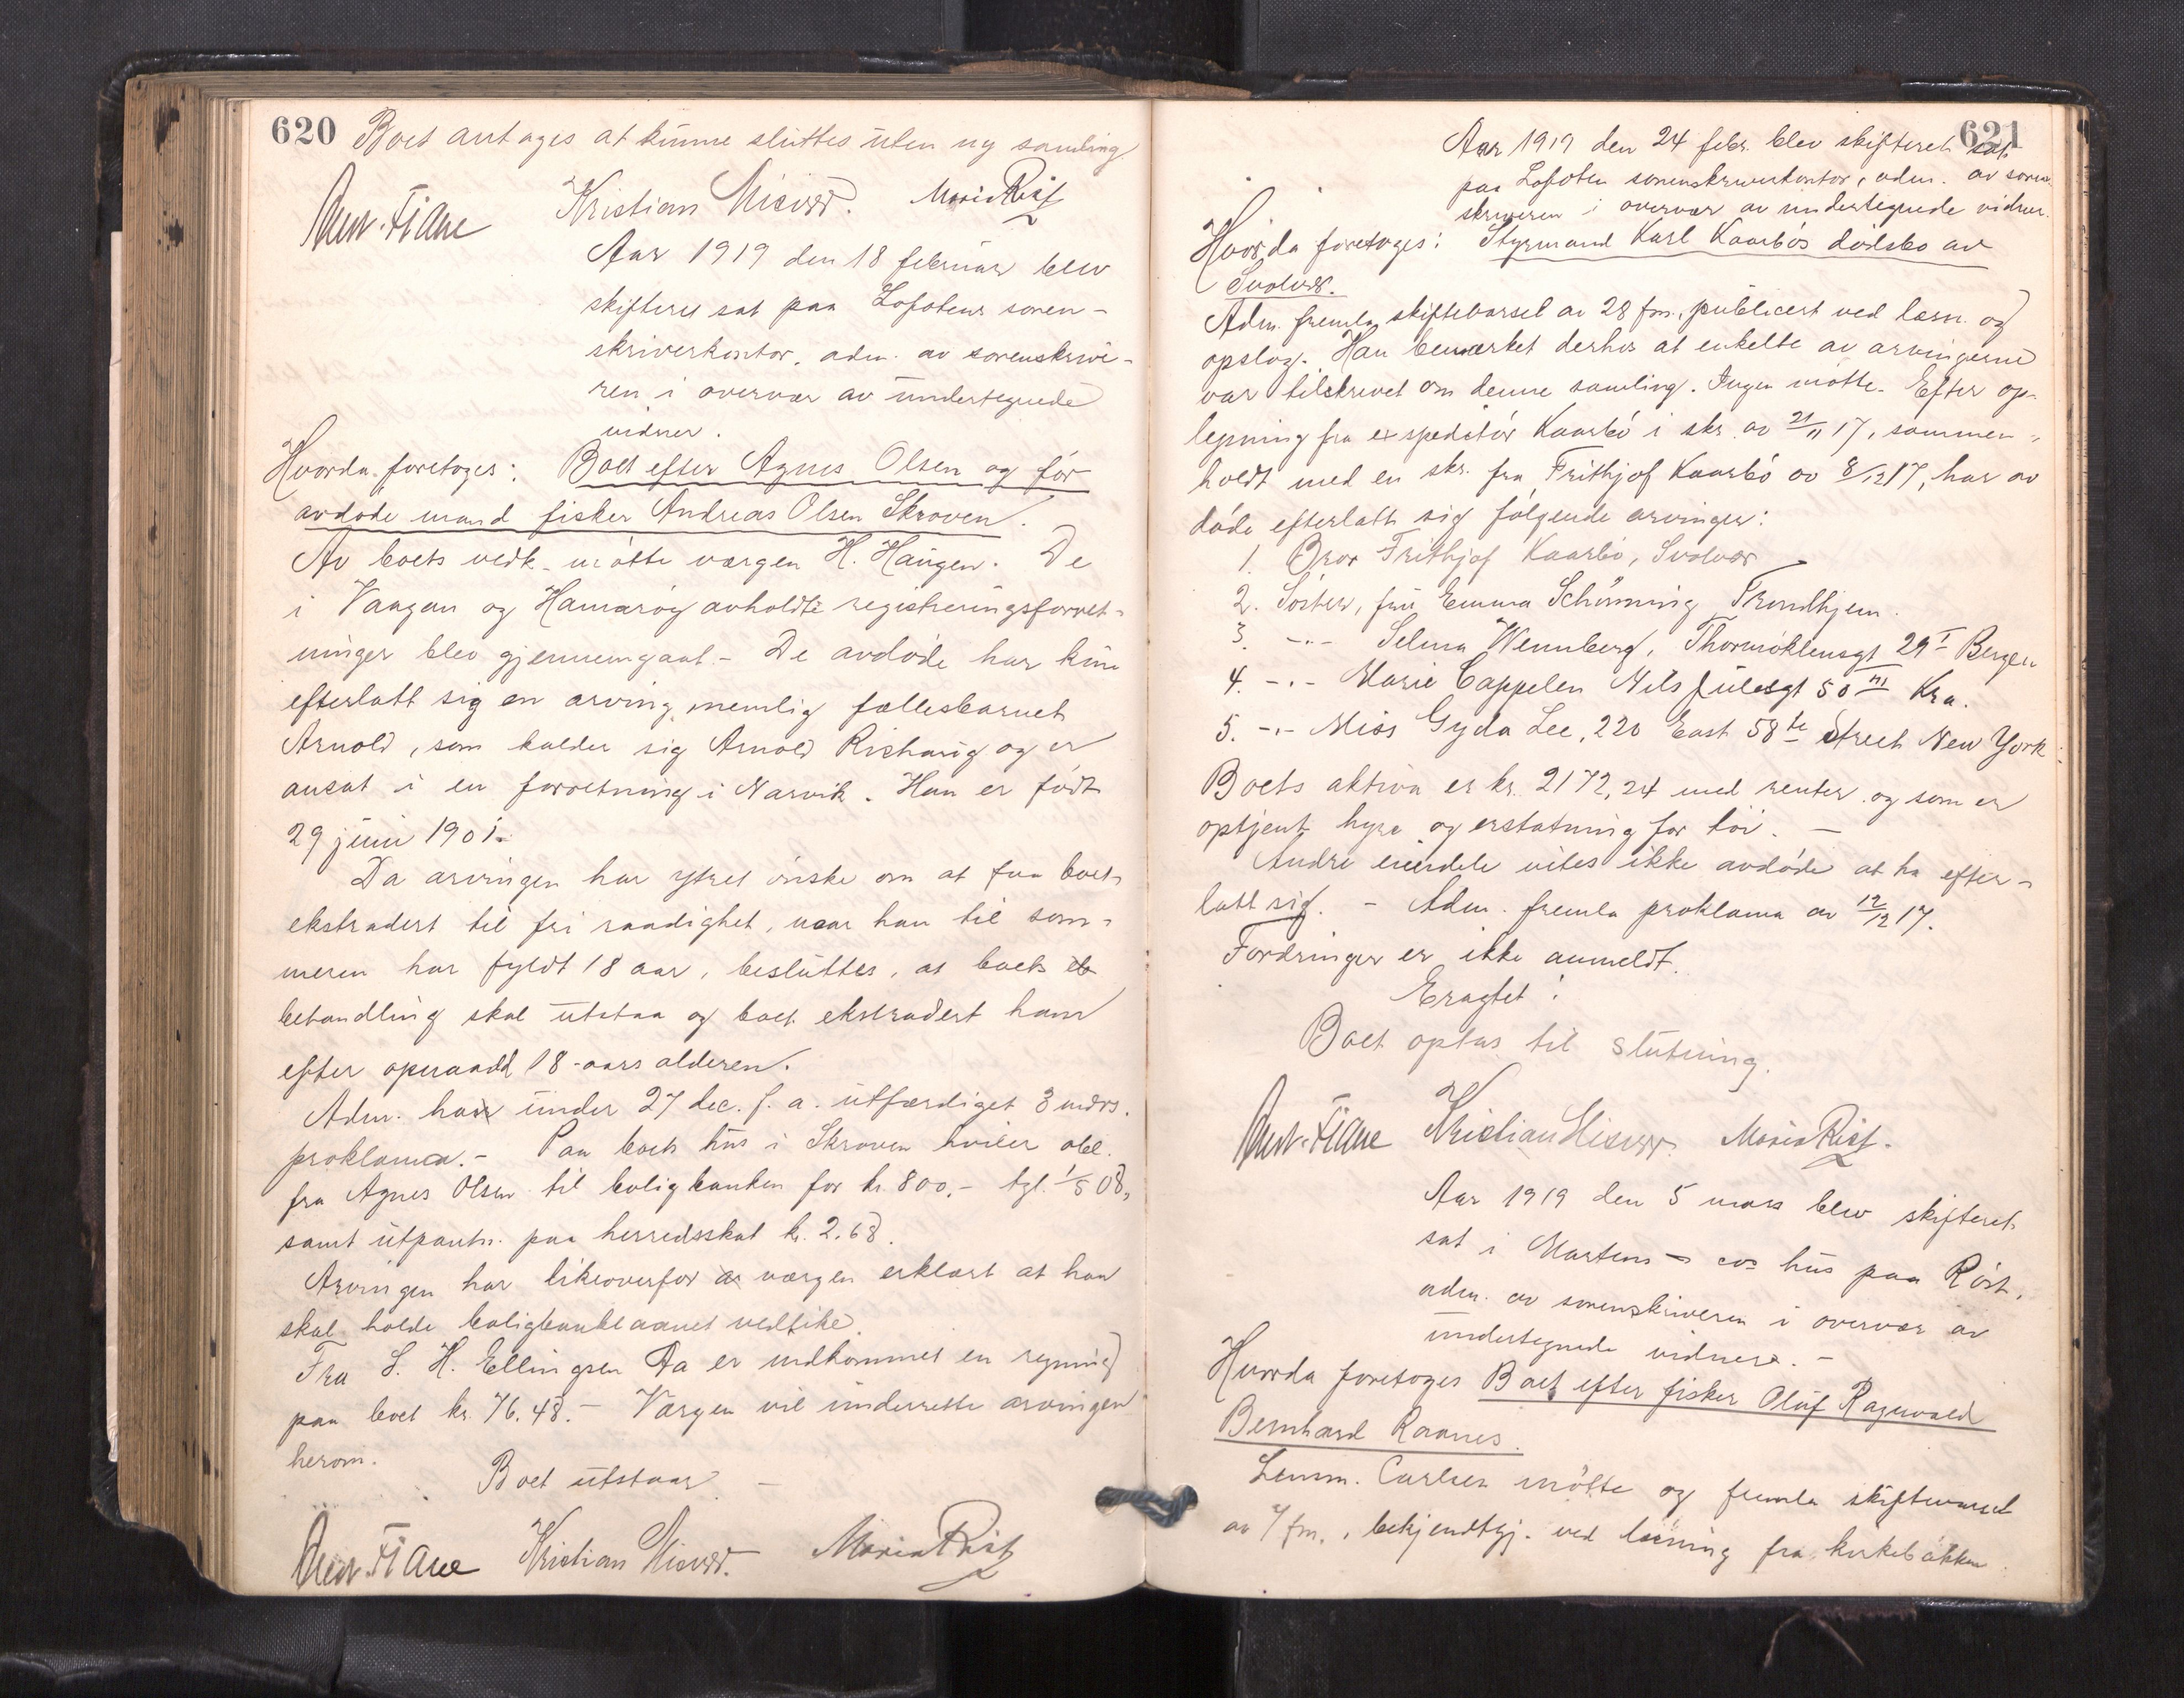 620
Boet antages at kunne sluttes uten ny samling
Kristian Maria Rist
Aar 1919 den 18 februar blev
skifteret sat paa Lofotens soren-
skriverkontor, adm. av sorenskrive-
ren i overvær av undertegnede
vidner.
Hvorda foretoges: Boet efter Agnes Olsen og før
avdøde mand fisker Andreas Olsen Skroven.
Av boets vedk. møtte værgen H. Haugen. De
i Vaagan og Hamarøy avholdte registreringsforret-
ninger blev gjennemgaat. - De avdøde har kun
efterlatt sig en arving, nemlig fællesbarnet
Arnold, som kalder sig Arnold Richarig og er
ansat i en forretning i Narvik. Han er født
29 juni 1901.
Da arvingen har ytret ønske om at faa boet
ekstradert til fri raadighet, naar han til som-
meren har fyldt 18 aar, besluttes, at boets
behandling skal utstaa og boet ekstradert ham
efter opnaadd 18-aars alderen.
Adm. har under 27 dec. f. a. utfærdiget 3 mdrs.
proklama. - Paa boets hus i Skroven hviler obl.
fra Agnes Olsen til boligbanken for kr. 800,- tgl. 1/5 08,
samt utpantn. paa herredsskat kr. 2.68.
Arvingen har likeoverfor værgen erklært at han
skal holde boligbanklaanet vedlike.
Fra S. H. Ellingsen Da er indkommet en regning
paa boet kr. 76.48. - Værgen vil underrette arvingen
herom.
Boet utstaar. -
Kristian Maria Rist
621
Aar 1919 den 24 febr. blev skifteret sat
paa Lofoten sorenskriverkontor, adm. av soren-
skriveren i overvær av undertegnede vidner.
Hvorda foretoges: Styrmand Karl Kaarbøs dødsbo av
Svolvær.
Adm. fremla skiftevarsel av 28 fm., publicert ved læsn. og
opslag. Han bemærket derhos at enkelte av arvingerne
var tilskrevet om denne samling. Ingen møtte. Efter op-
lysning fra expeditør Kaarbø i skr. av 21/11 17, sammen-
holdt med en skr. fra Frithjof Kaarbø av 8/12 17, har av
døde efterlatt sig følgende arvinger:
1. Bror Frithjof Kaarbø, Svolvær
2. Søster, fru Emma Schönning Trondhjem.
3. -"- Selma Wennberg, Thormøhlensgt 29 I Bergen
4. -"- Marie Cappelen Nils Juelsgt 50 III Kra.
5. -"- Miss Gyda Lee, 220 East 58te Street New York.
Boets aktiva er kr. 2172,24 med renter og som er
optjent hyre og erstatning for tøi. -
Andre eiendele vites ikke avdøde at ha efter-
latt sig. - Adm. fremla proklama av 12/12 17.
Fordringer er ikke anmeldt.
Eragtet:
Boet optas til slutning.
Kristian Maria Rist.
Aar 1919 den 5 mars blev skifteret
sat i Martens hus paa Røst,
adm. av sorenskriveren i overvær av
undertegnede vidner. -
Hvorda foretoges Boet efter fisker Oluf Ragnvald
Bernhard Raanes.
Lensm. Carlsen møtte og fremla skiftevarsel
av 7 fm., bekjendtgj. ved læsning fra kirkebakken